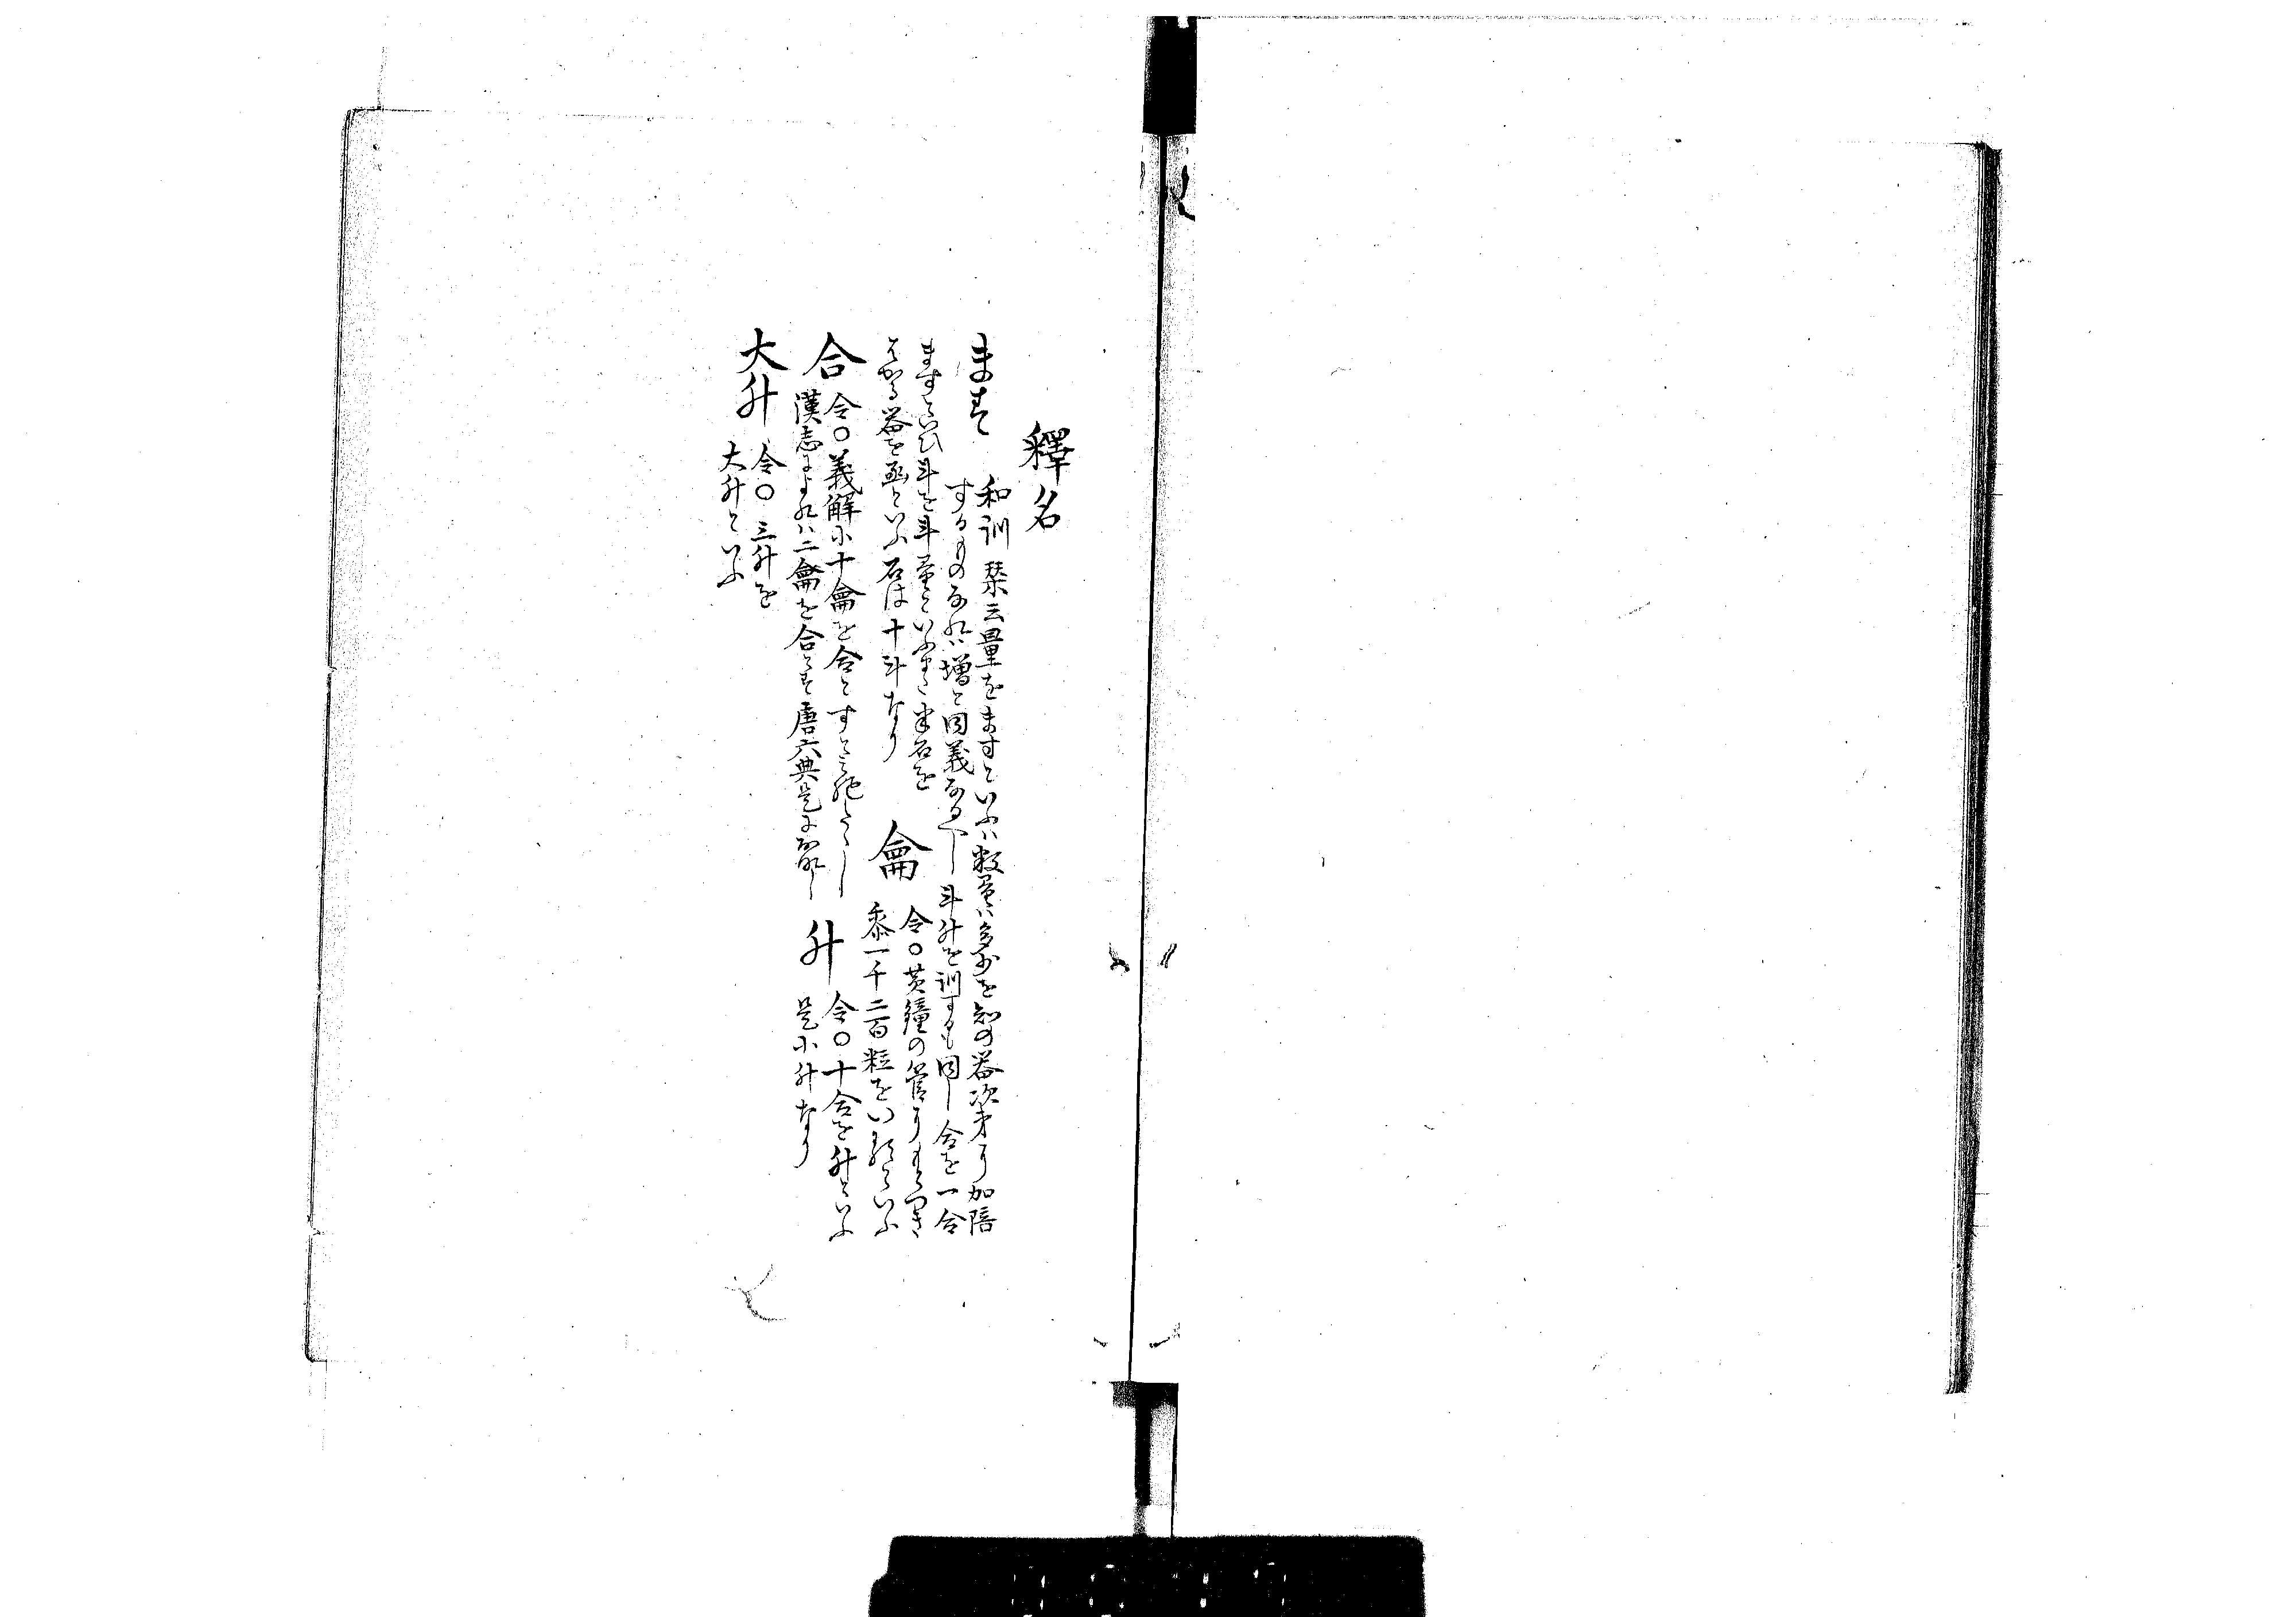 釋名
ます
和訓栞云量をますといふハ数量ハ多少を知の器次第に加陪
するものなれハ増と同義なるへし斗升を訓するも同し合を一合
ますといひ斗を斗量といふまた米石を
はかる器を函といふ石は十斗なり
龠
令〇黄鐘の管にもとつき
黍一千二百粒をいるゝといふ
合
令〇義解に十龠を合とすとみえたり
漢志によれハ二龠を合とす唐六典是におなし
升
令〇十合を升といふ
是小升なり
大升
令〇三升を
大升といふ